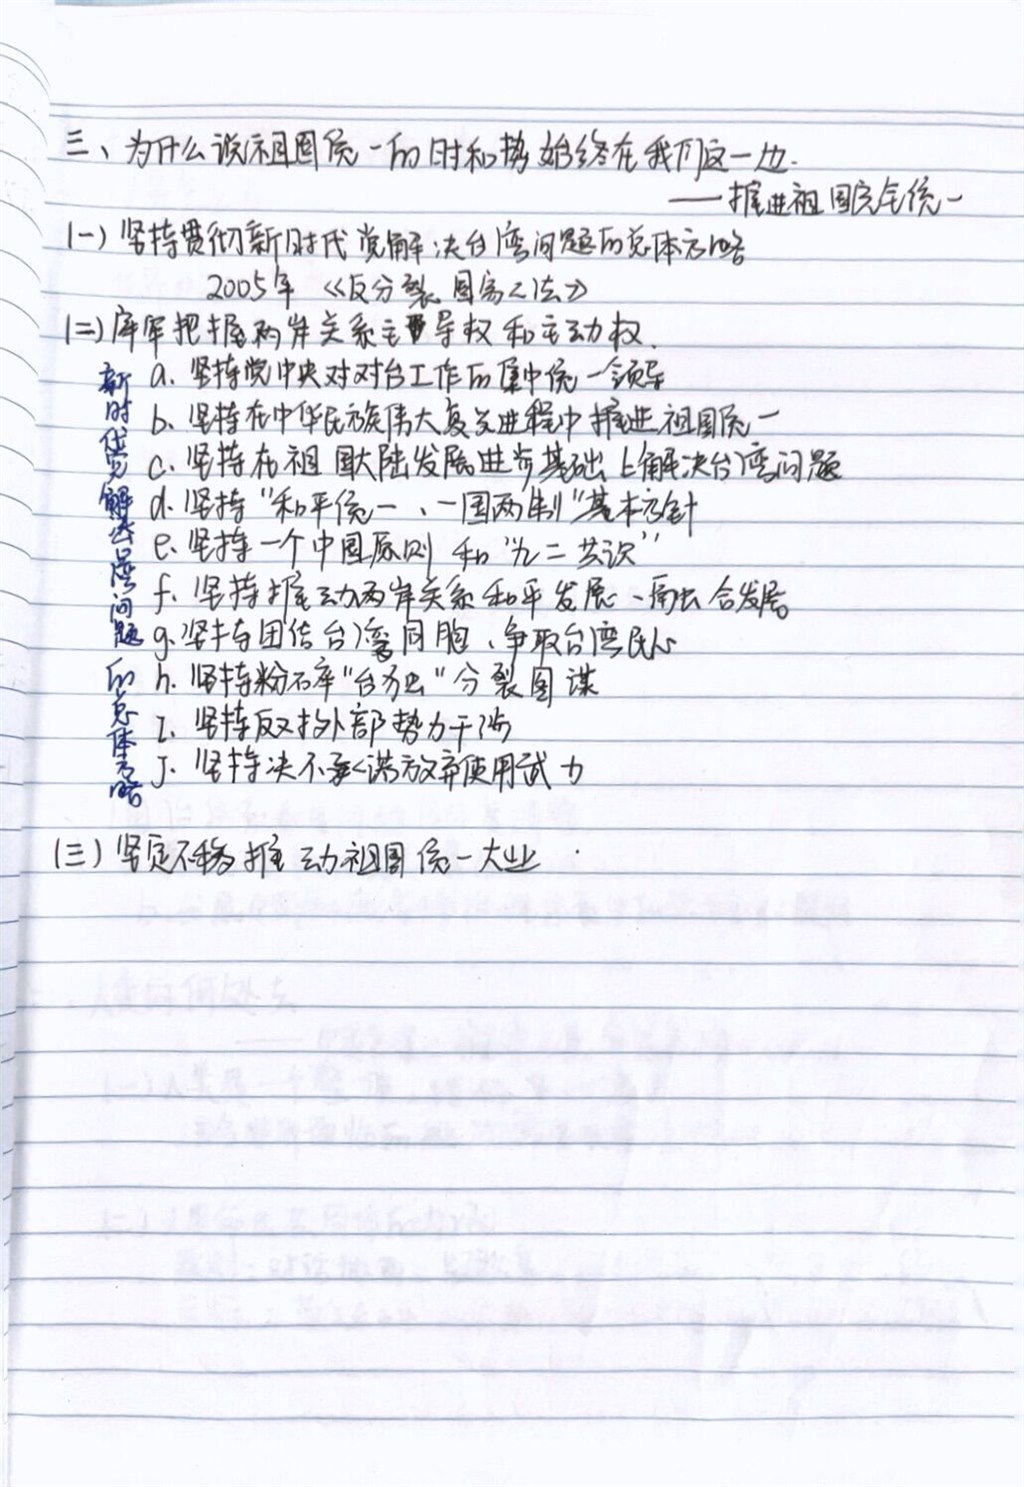 三、为什么说祖国统一的时和势始终在我们这一边.
——推进祖国完全统一
(一)坚持贯彻新时代党解决台湾问题的总体方略
2005年《反分裂国家法》
(二)牢牢把握两岸关系主导权和主动权.
新时代党解决台湾问题的总体方略
a. 坚持党中央对对台工作的集中统一领导
b. 坚持在中华民族伟大复兴进程中推进祖国统一
c. 坚持在祖国大陆发展进步基础上解决台湾问题
d. 坚持"和平统一、一国两制"基本方针
e. 坚持一个中国原则和"九二共识"
f. 坚持推动两岸关系和平发展、融合发展
g. 坚持团结台湾同胞、争取台湾民心
h. 坚持粉碎"台独"分裂图谋
I. 坚持反对外部势力干涉
J. 坚持决不承诺放弃使用武力
(三)坚定不移推动祖国统一大业